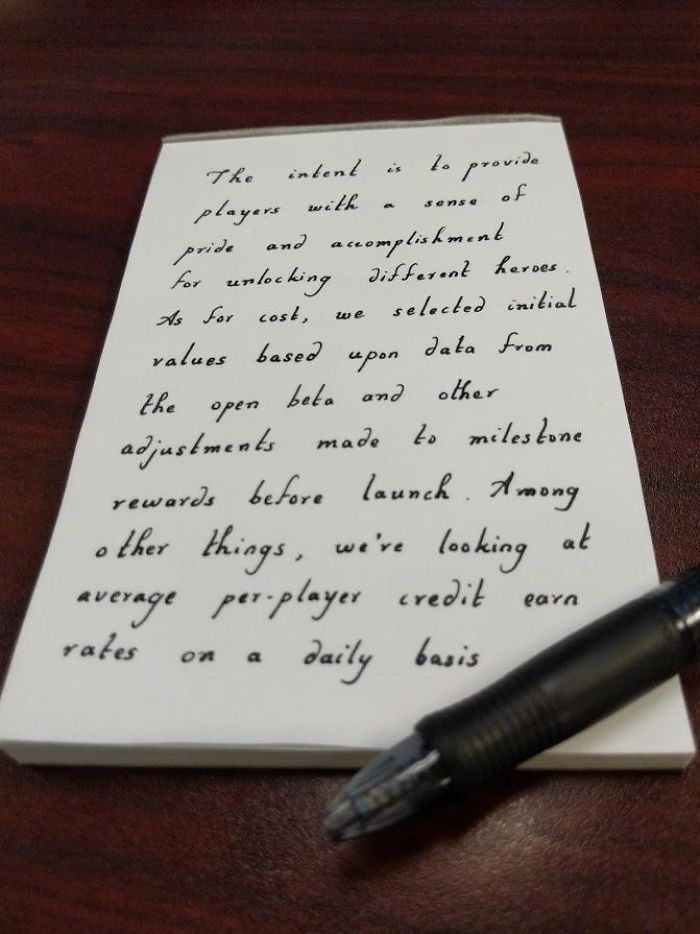 The intent is to provide
players with a sense of
pride and accomplishment
for unlocking different heroes.
As for cost, we selected initial
values based upon data from
the open beta and other
adjustments made to milestone
rewards before launch. Among
other things, we're looking at
average per-player credit earn
rates on a daily basis